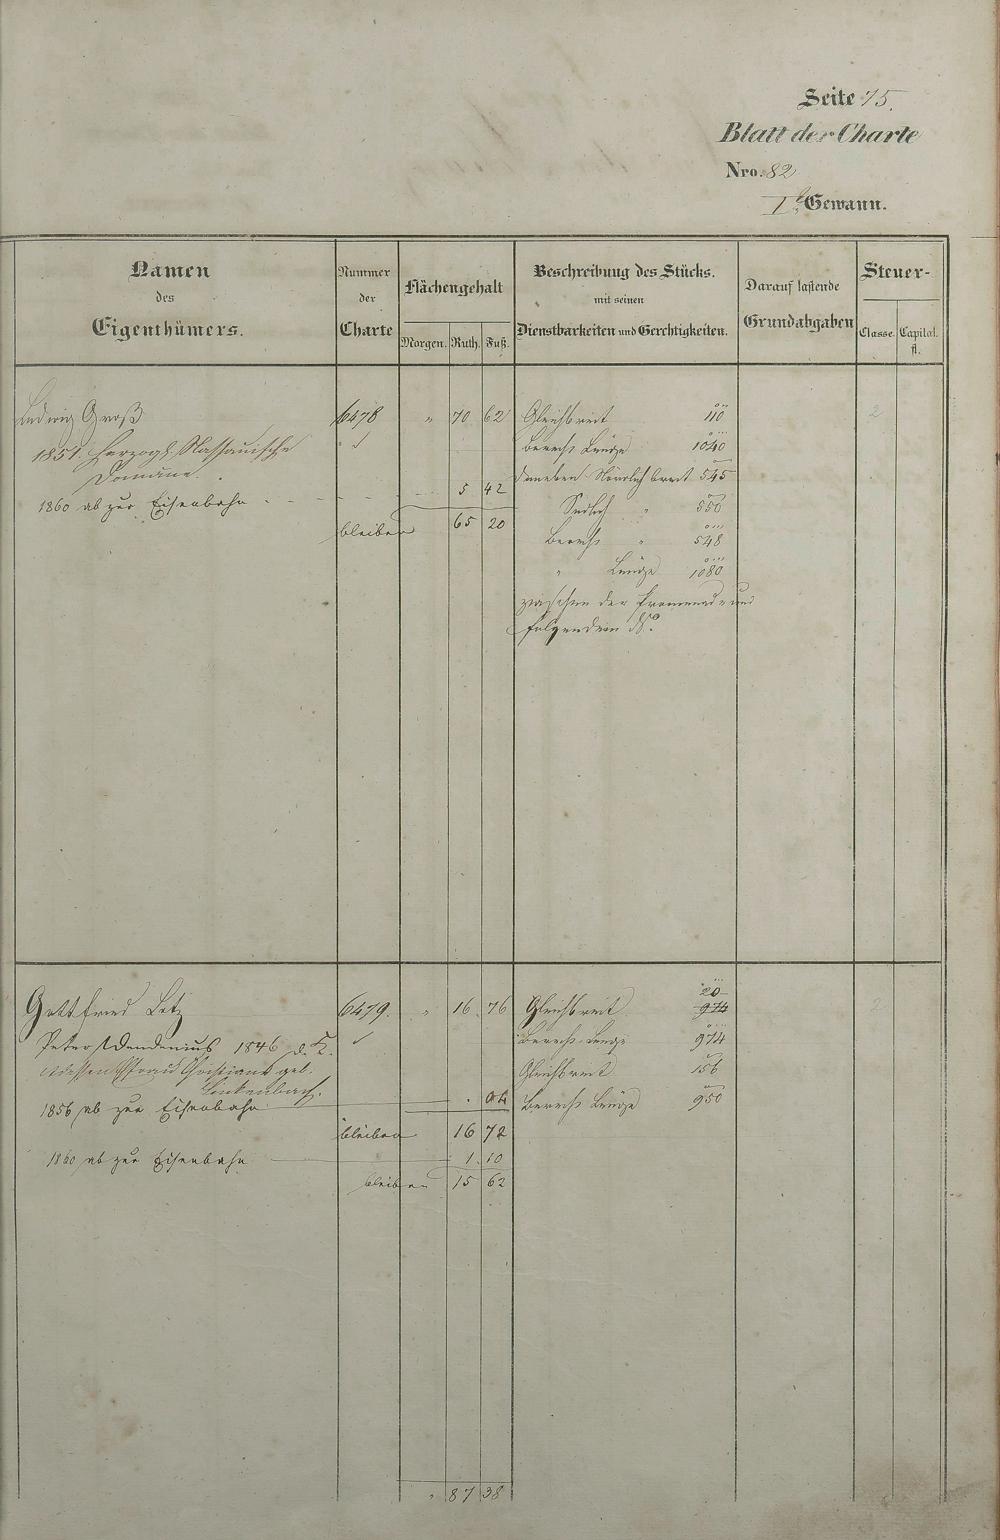 Seite 75.
Blatt der Charte
Nro. 82
I Gewann.
Namen des Eigenthümers.
Nummer der Charte
Flächengehalt
Morgen. Ruth. Fuß.
Beschreibung des Stücks. mit seinen Dienstbarkeiten und Gerechtigkeiten.
Darauf lastende Grundabgaben
Steuer-
Classe. Capital. fl.
Ludwig Groß 6478 " 70 62 Gleichbreit 110 2
1851. Herzogl. Nassauische Berechs. Länge 1040
Domäne. daneben Nördlich breit 545
1860 ab zur Eisenbahn 5 42 Südlich " 550
bleiben 65 20 Berechs. " 548
" Länge 1080
zwischen der Promenade und
folgendem
Gottfried Letz 6479. " 16 76 Gleichbreit 20 974 2
Peter 1846 d. K. Berechs. Länge 974
dessen Frau Christiane geb. Gleichbreit 156
Linkenbach.
1856 ab zur Eisenbahn . 04 Berechs. Länge 950
bleiben 16 72
1860 ab zur Eisenbahn 1 10
bleiben 15 62
" 87 38